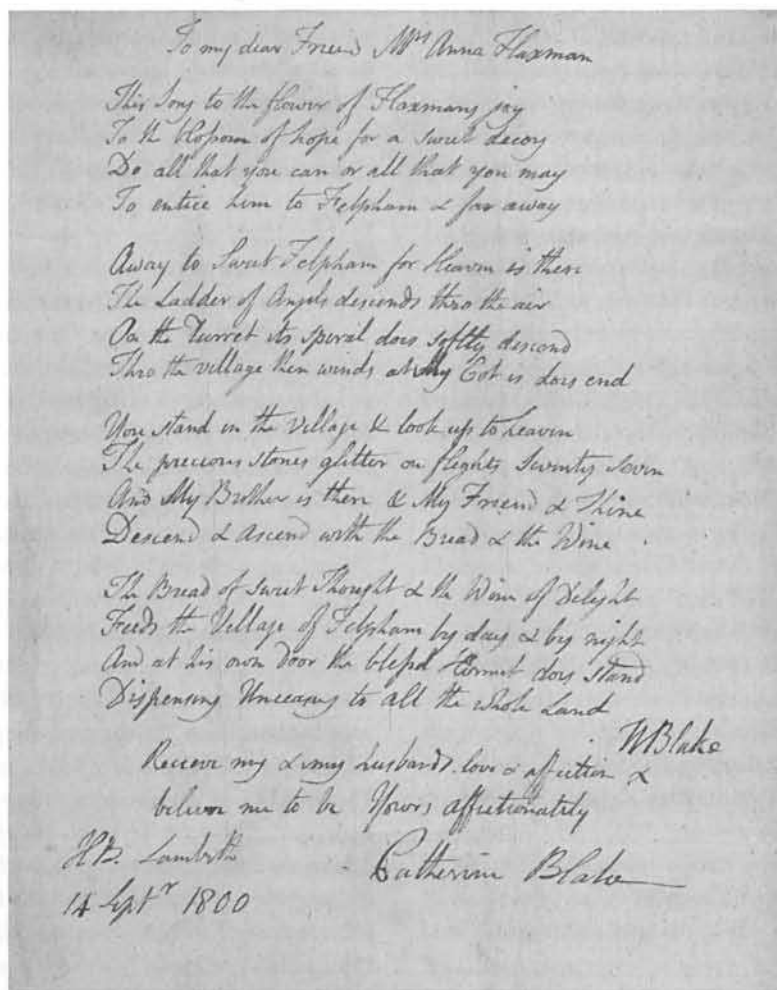 To my dear Friend Mrs Anna Flaxman
This Song to the flower of Flaxmans joy
To the blossom of hope for a sweet decoy
Do all that you can or all that you may
To entice him to Felpham & far away
Away to Sweet Felpham for Heaven is there
The Ladder of Angels descends thro the air
On the Turret its spiral does softly descend
Thro the village then winds at My Cot it does end
You stand in the village & look up to heaven
The precious stones glitter on flights seventy seven
And My Brother is there & My Friend & Thine
Descend & Ascend with the Bread & the Wine
The Bread of sweet Thought & the Wine of Delight
Feeds the Village of Felpham by day & by night
And at his own door the blessd Hermit does stand
Dispensing Unceasing to all the whole Land
WBlake
Recieve my & my husbands love & affection &
believe me to be Yours affectionately
Catherine Blake
HB Lambeth
14 Septr 1800